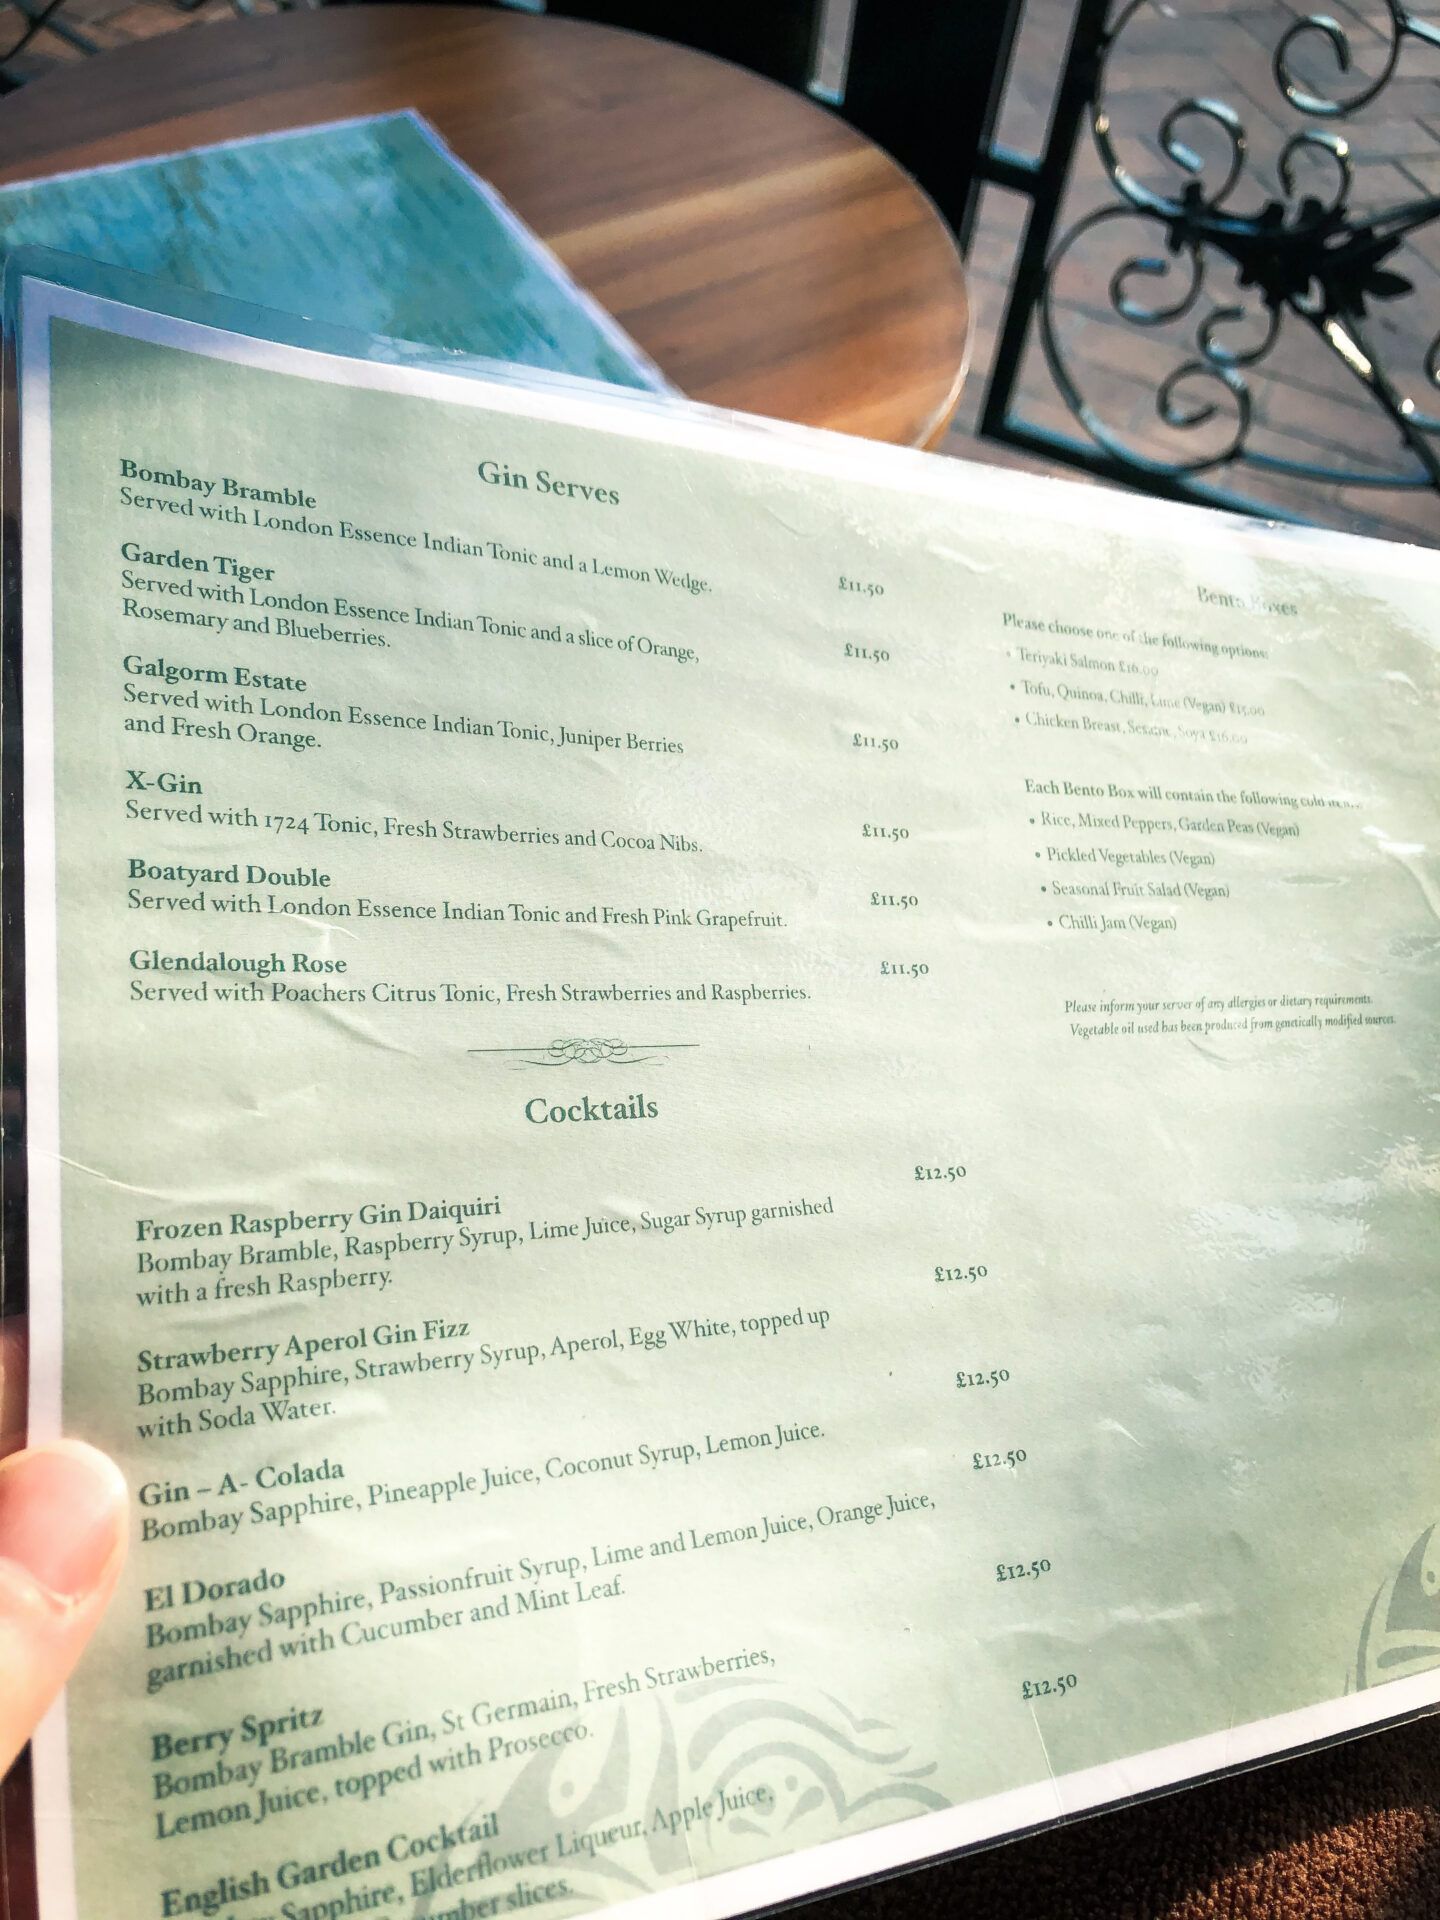 Gin Serves
Bombay Bramble
Served with London Essence Indian Tonic and a Lemon Wedge.
£11.50
Garden Tiger
Served with London Essence Indian Tonic and a slice of Orange,
Rosemary and Blueberries.
£11.50
Galgorm Estate
Served with London Essence Indian Tonic, Juniper Berries
and Fresh Orange.
£11.50
X-Gin
Served with 1724 Tonic, Fresh Strawberries and Cocoa Nibs.
£11.50
Boatyard Double
Served with London Essence Indian Tonic and Fresh Pink Grapefruit.
£11.50
Glendalough Rose
Served with Poachers Citrus Tonic, Fresh Strawberries and Raspberries.
£11.50
Cocktails
£12.50
Frozen Raspberry Gin Daiquiri
Bombay Bramble, Raspberry Syrup, Lime Juice, Sugar Syrup garnished
with a fresh Raspberry.
£12.50
Strawberry Aperol Gin Fizz
Bombay Sapphire, Strawberry Syrup, Aperol, Egg White, topped up
with Soda Water.
£12.50
Gin – A- Colada
Bombay Sapphire, Pineapple Juice, Coconut Syrup, Lemon Juice.
£12.50
El Dorado
Bombay Sapphire, Passionfruit Syrup, Lime and Lemon Juice, Orange Juice,
garnished with Cucumber and Mint Leaf.
£12.50
Berry Spritz
Bombay Bramble Gin, St Germain, Fresh Strawberries,
Lemon Juice, topped with Prosecco.
£12.50
English Garden Cocktail
Sapphire, Elderflower Liqueur, Apple Juice,
slices.
Bento Boxes
Please choose one of the following options:
• Teriyaki Salmon £16.00
• Tofu, Quinoa, Chilli, Lime (Vegan) £15.00
• Chicken Breast, Sesame, Soya £16.00
Each Bento Box will contain the following cold
• Rice, Mixed Peppers, Garden Peas (Vegan)
• Pickled Vegetables (Vegan)
• Seasonal Fruit Salad (Vegan)
• Chilli Jam (Vegan)
Please inform your server of any allergies or dietary requirements.
Vegetable oil used has been produced from genetically modified sources.